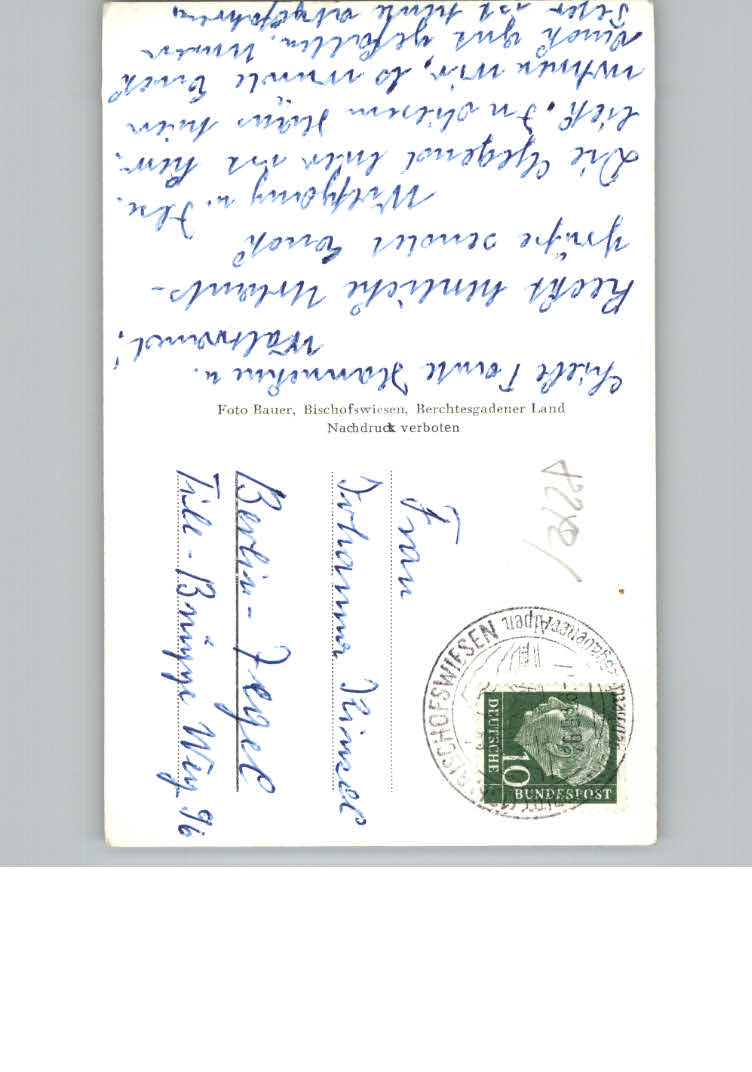 Liebe Tante Hannchen u.
Waltraud!
Recht herzliche Urlaubs-
grüße sendet Euch
Wolfgang u. Ilse.
Die Gegend hier ist herr-
lich. In diesem Haus hier
wohnen wir, es würde Euch
auch gut gefallen. Unser
ist heute abgefahren
Foto Bauer, Bischofswiesen, Berchtesgadener Land
Nachdruck verboten
Frau
Johanna
Berlin-Tegel
Tile-Brügge Weg 9/6
BISCHOFSWIESEN
Alpen
DEUTSCHE
BUNDESPOST
10